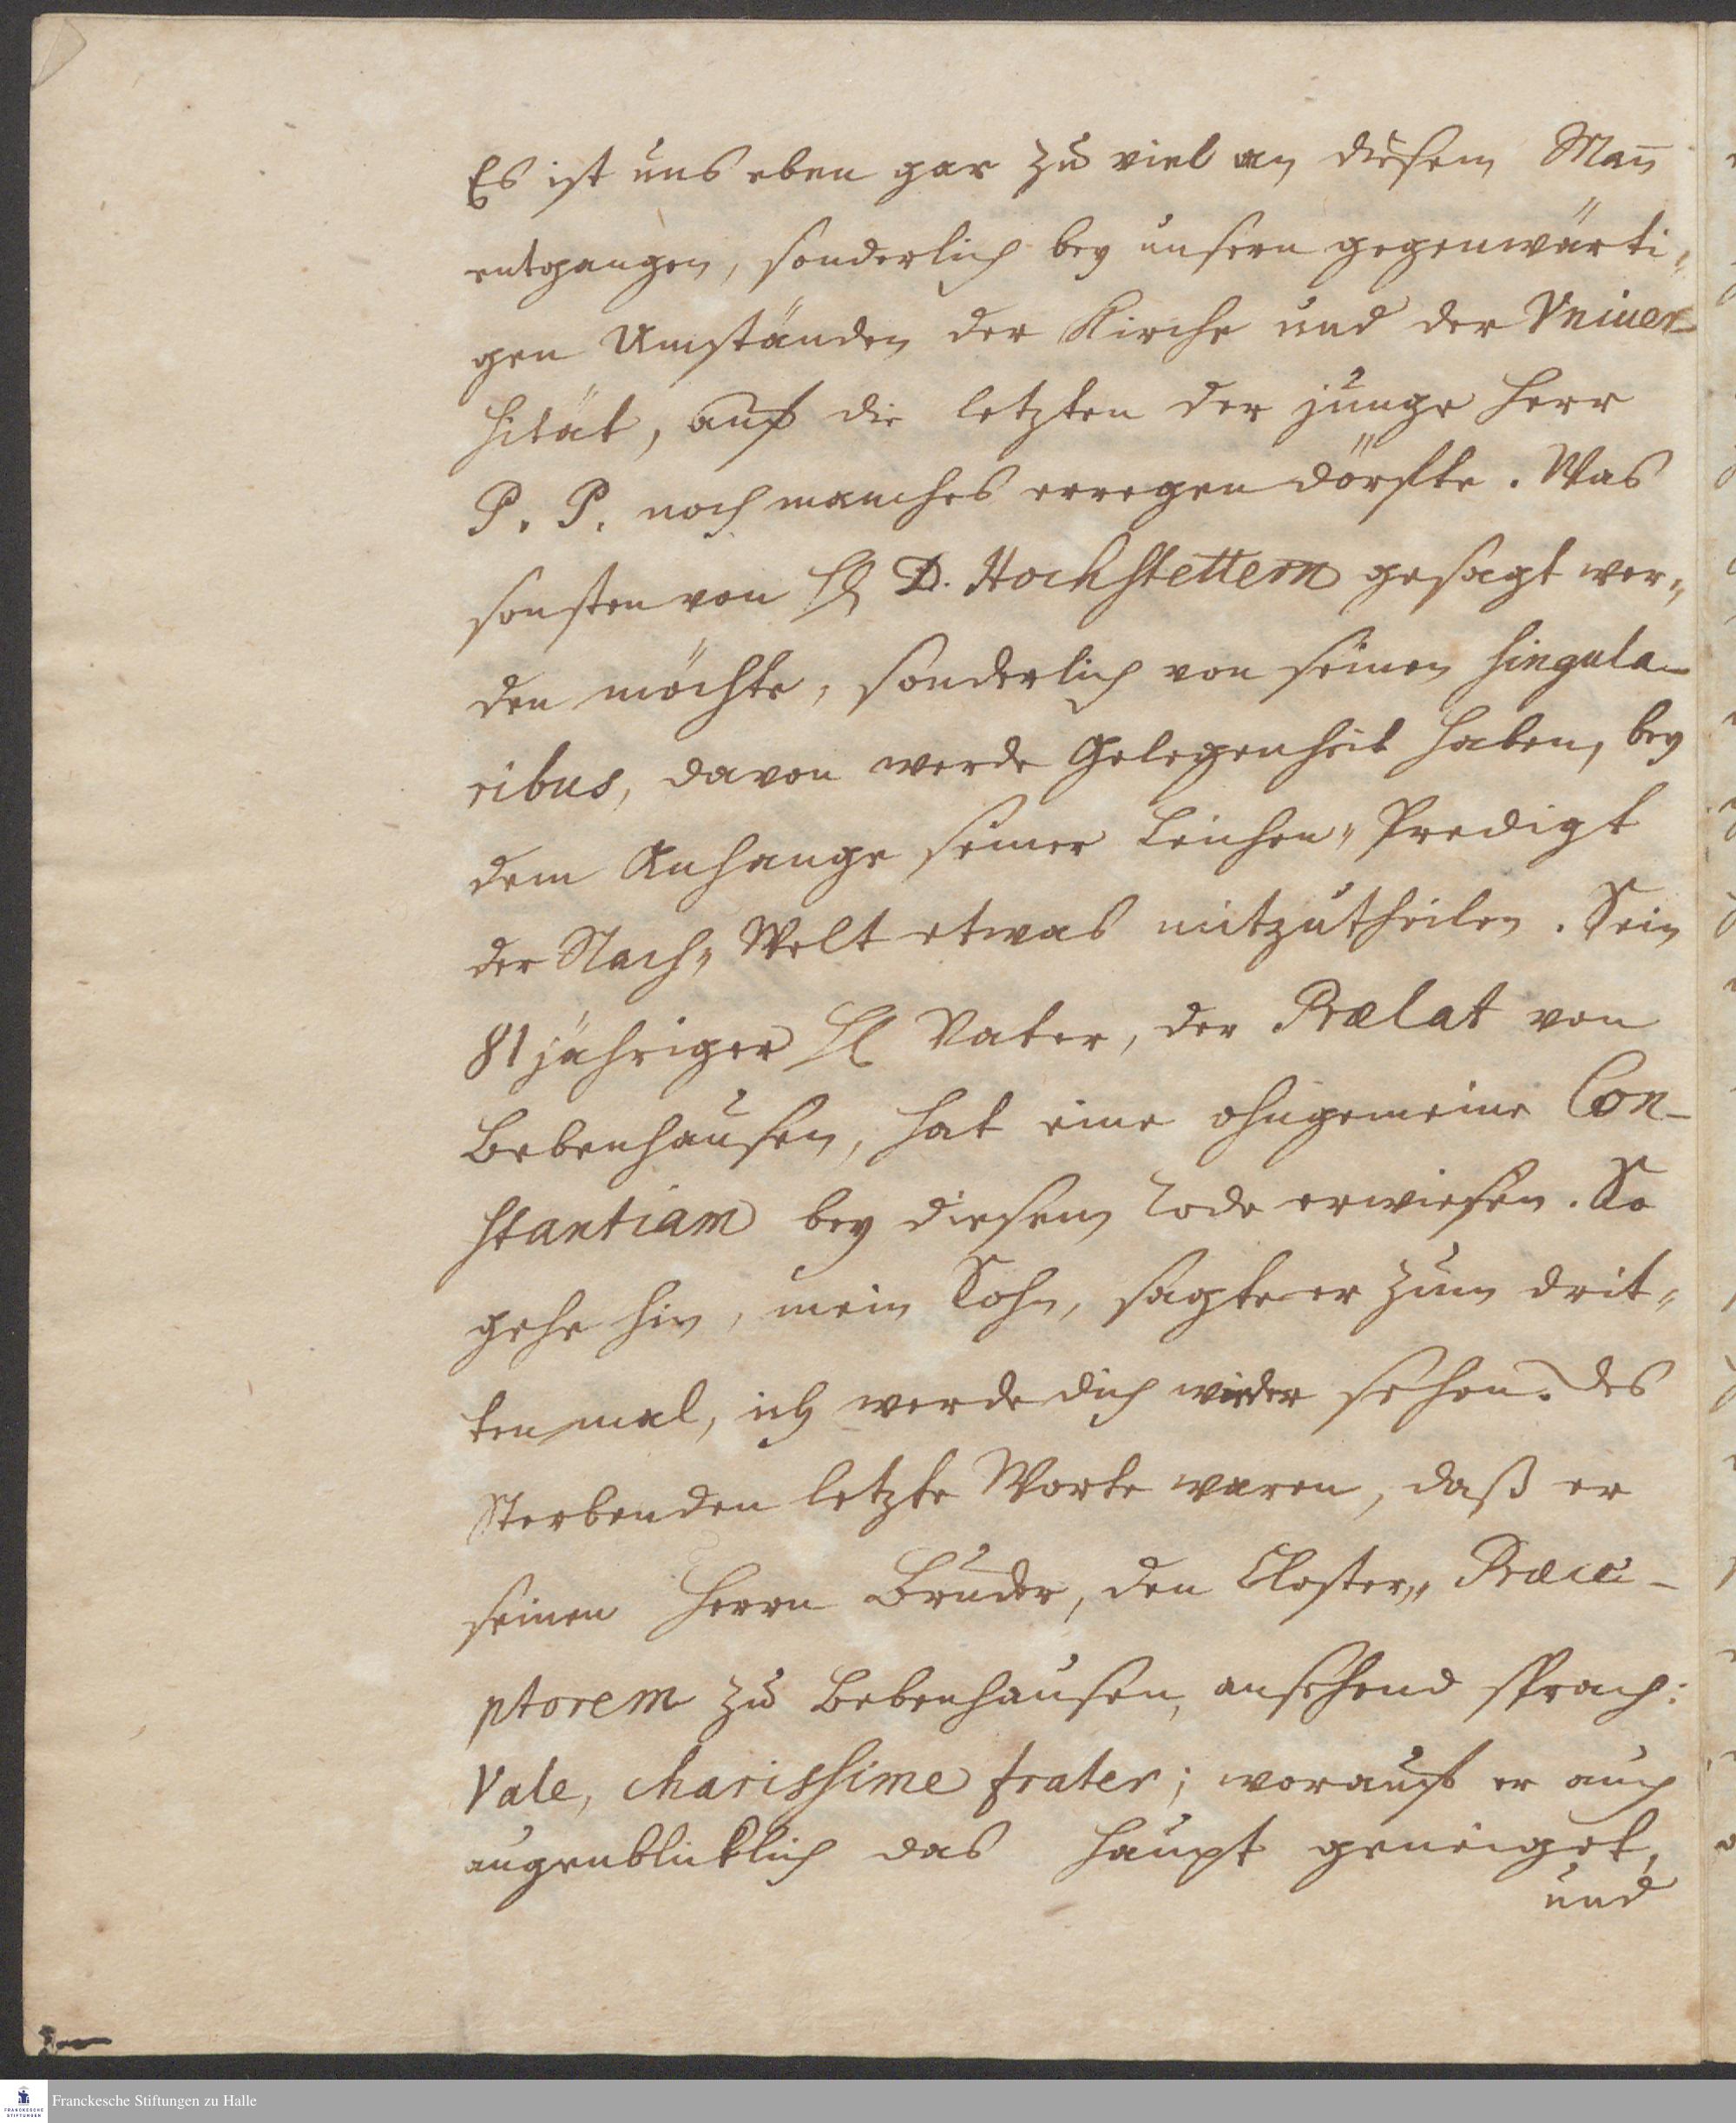 Es ist uns eben gar zu viel an diesem Mann̄
entgangen, sonderlich bey unsern gegenwärti„
gen Umständen der Kirche und der Vniver-
sität, auf die letzten der junge Herr
P. P. noch manches erregen dörffte. Was
sonsten von H D. Hochstettern gesagt wer„
den möchte, sonderlich von seinen singula-
ribus, davon werde Gelegenheit haben, bey
dem Anhange seiner Leichen„Predigt
der Nach„Welt etwas mitzutheilen. Sein
81 jähriger H Vater, der Prælat von
Bebenhausen, hat eine ohngemeine Con-
stantiam bey diesem Tode erwiesen. So
gehe hin, mein Sohn, sagte er zum drit„
tenmal, ich werde dich wieder sehen. Des
Sterbenden letzte Worte waren, daß er
seinen Herrn Bruder, den Closter„Præce-
ptorem zu Bebenhausen, ansehend sprach:
Vale, charissime frater; worauf er auch
augenblicklich das Haupt geneiget,
und
Franckesche Stiftungen zu Halle
FRANCKESCHE
STIFTUNGEN